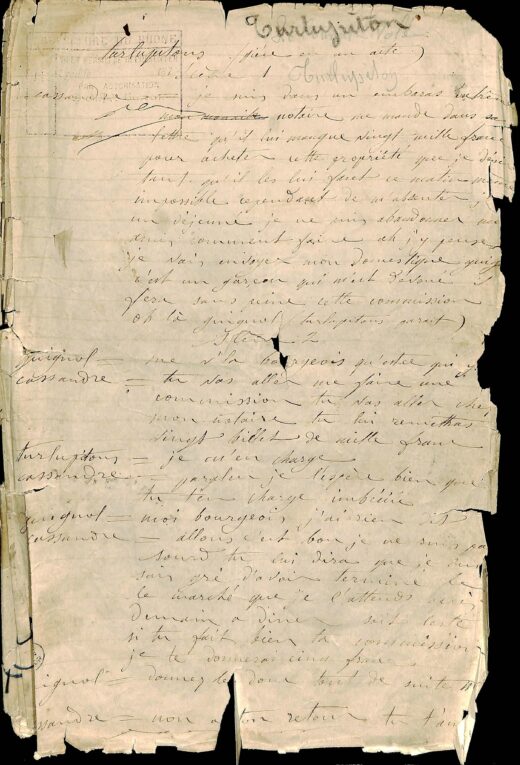 Turlupiton
turlupitons (pièce en un acte)
scène 1 Turlupiton
cassandre je suis dans un embaras
notaire me mande dans sa
lettre qu'il lui manque vingt mille franc
pour acheter cette propriété que je
tant qu'il les lui faut ce matin même
impossible cependant de m'absenter
un déjeuné je ne puis abandonner
amis comment faire ah j'y pense
je vais envoyer mon domestique
c'est un garçon qui m'est dévoué
fera sans peine cette commission
oh là guignol (turlupitons parait)
Scène 2
guignol = me v'la bourgeois qu'estce qui
cassandre = tu vas aller me faire une
commission tu vas aller che
mon notaire tu lui remettras
vingt billet de mille franc
turlupitons = je m'en charge
cassandre = parbleu je l'espère bien que
tu t'en charge imbécile
guignol = moi bourgeois j'ai rien
cassandre = allons c'est bon je ne suis pa
sourd tu lui dira que je
sais gré d'avoir terminé le
le marché que je l'attends
demain a diner
si tu fait bien ta commission
je te donnerai cinq franc
guignol = donnez les donc tout de suite
cassandre = non a ton retour tu